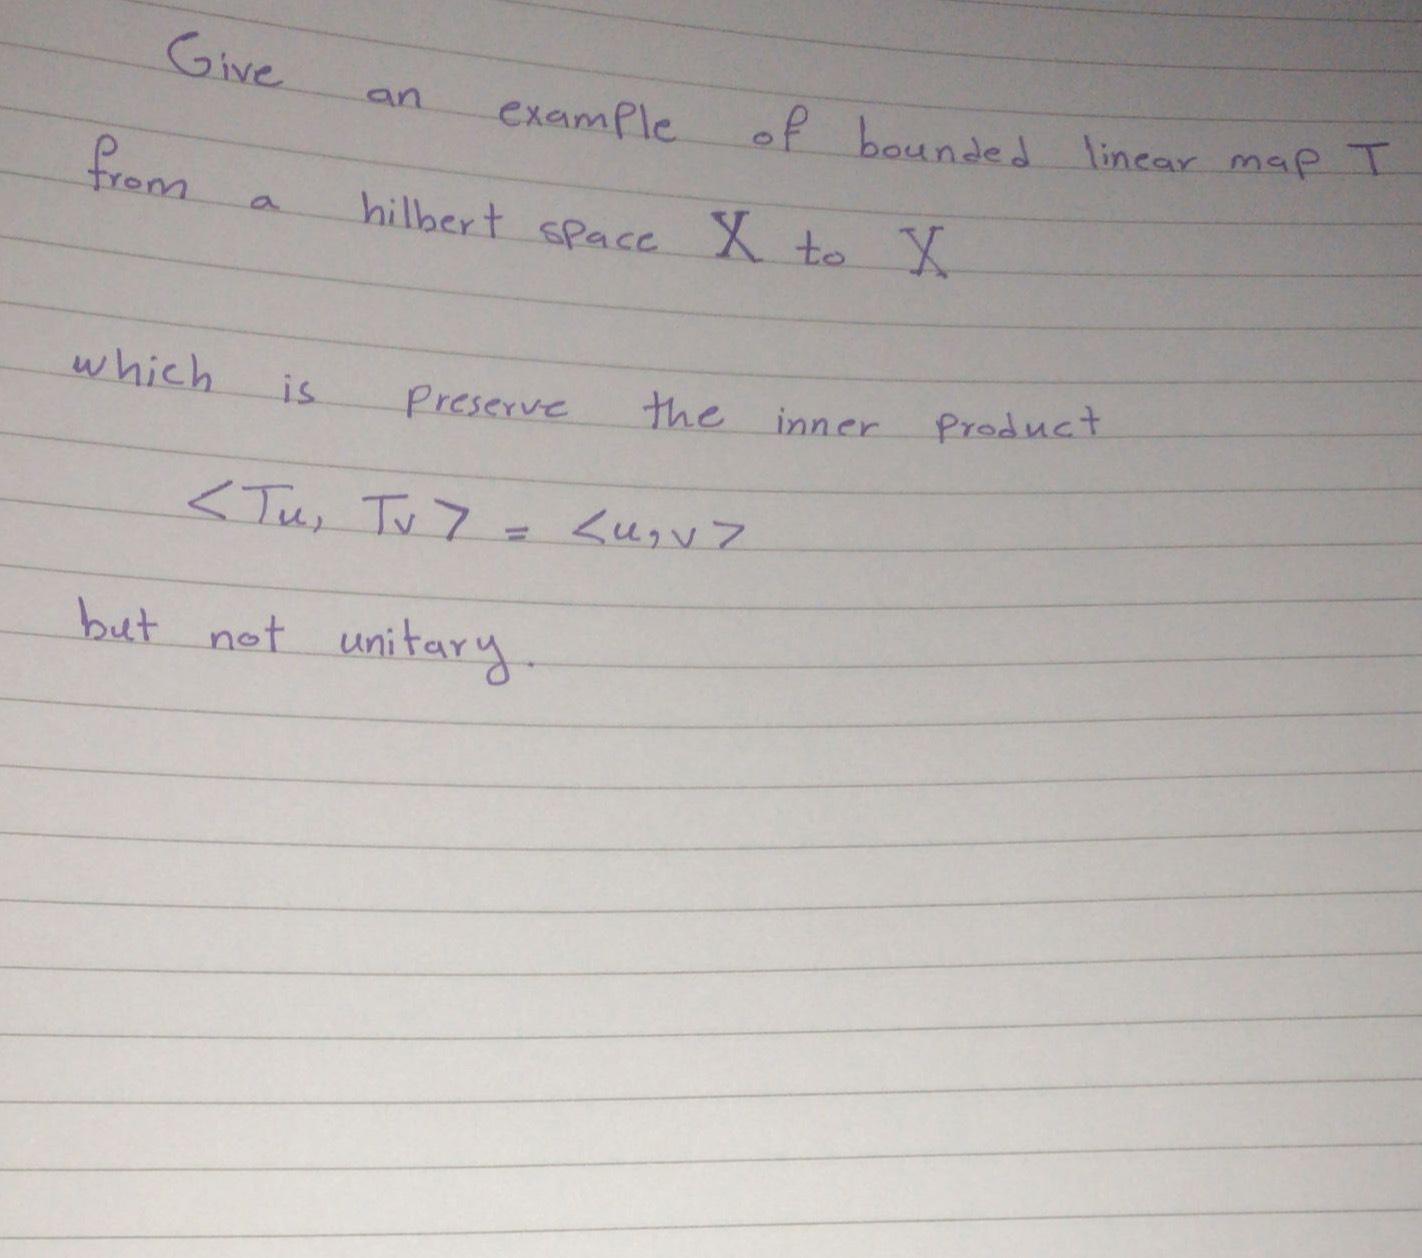 Give an example of bounded linear map T
from a hilbert space X to X
which is preserve the inner product
<Tu, Tv> = <u,v>
but not unitary.